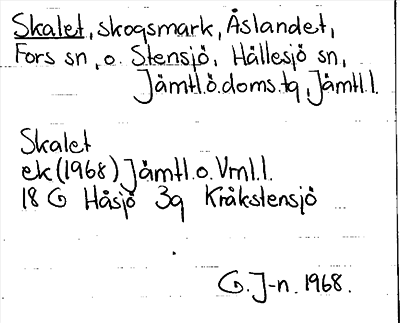 Skalet, skogsmark, Åslandet,
Fors sn, o. Stensjö, Hällesjö sn,
Jämtl.ö.doms.tg, Jämtl.l.
Skalet
ek (1968) Jämtl.o.Vrnl.l.
18 G Håsjö 3g Kråkstensjö
G. J-n. 1968.